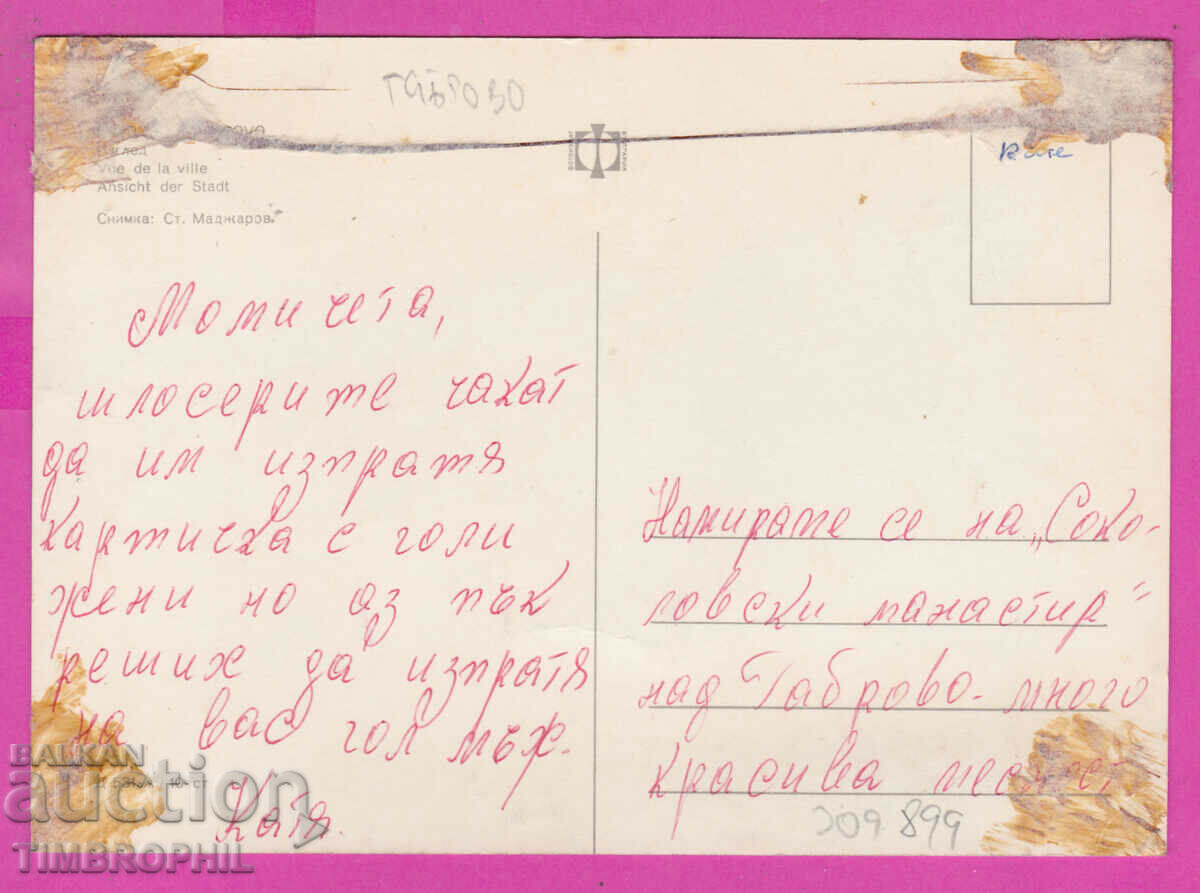 ГАБРОВО
Vue de la ville
Ansicht der Stadt
Снимка: Ст. Маджаров
каге
Момичета,
шлосерите чакат
да им изпратя
картичка с голи
жени но аз пък
реших да изпратя
на вас гол мъж.
Катя.
Намираме се на „Соко-
ловски манастир"
над Габрово - много
красива местност
309 899
BALKAN
auction
TIMBROPHIL